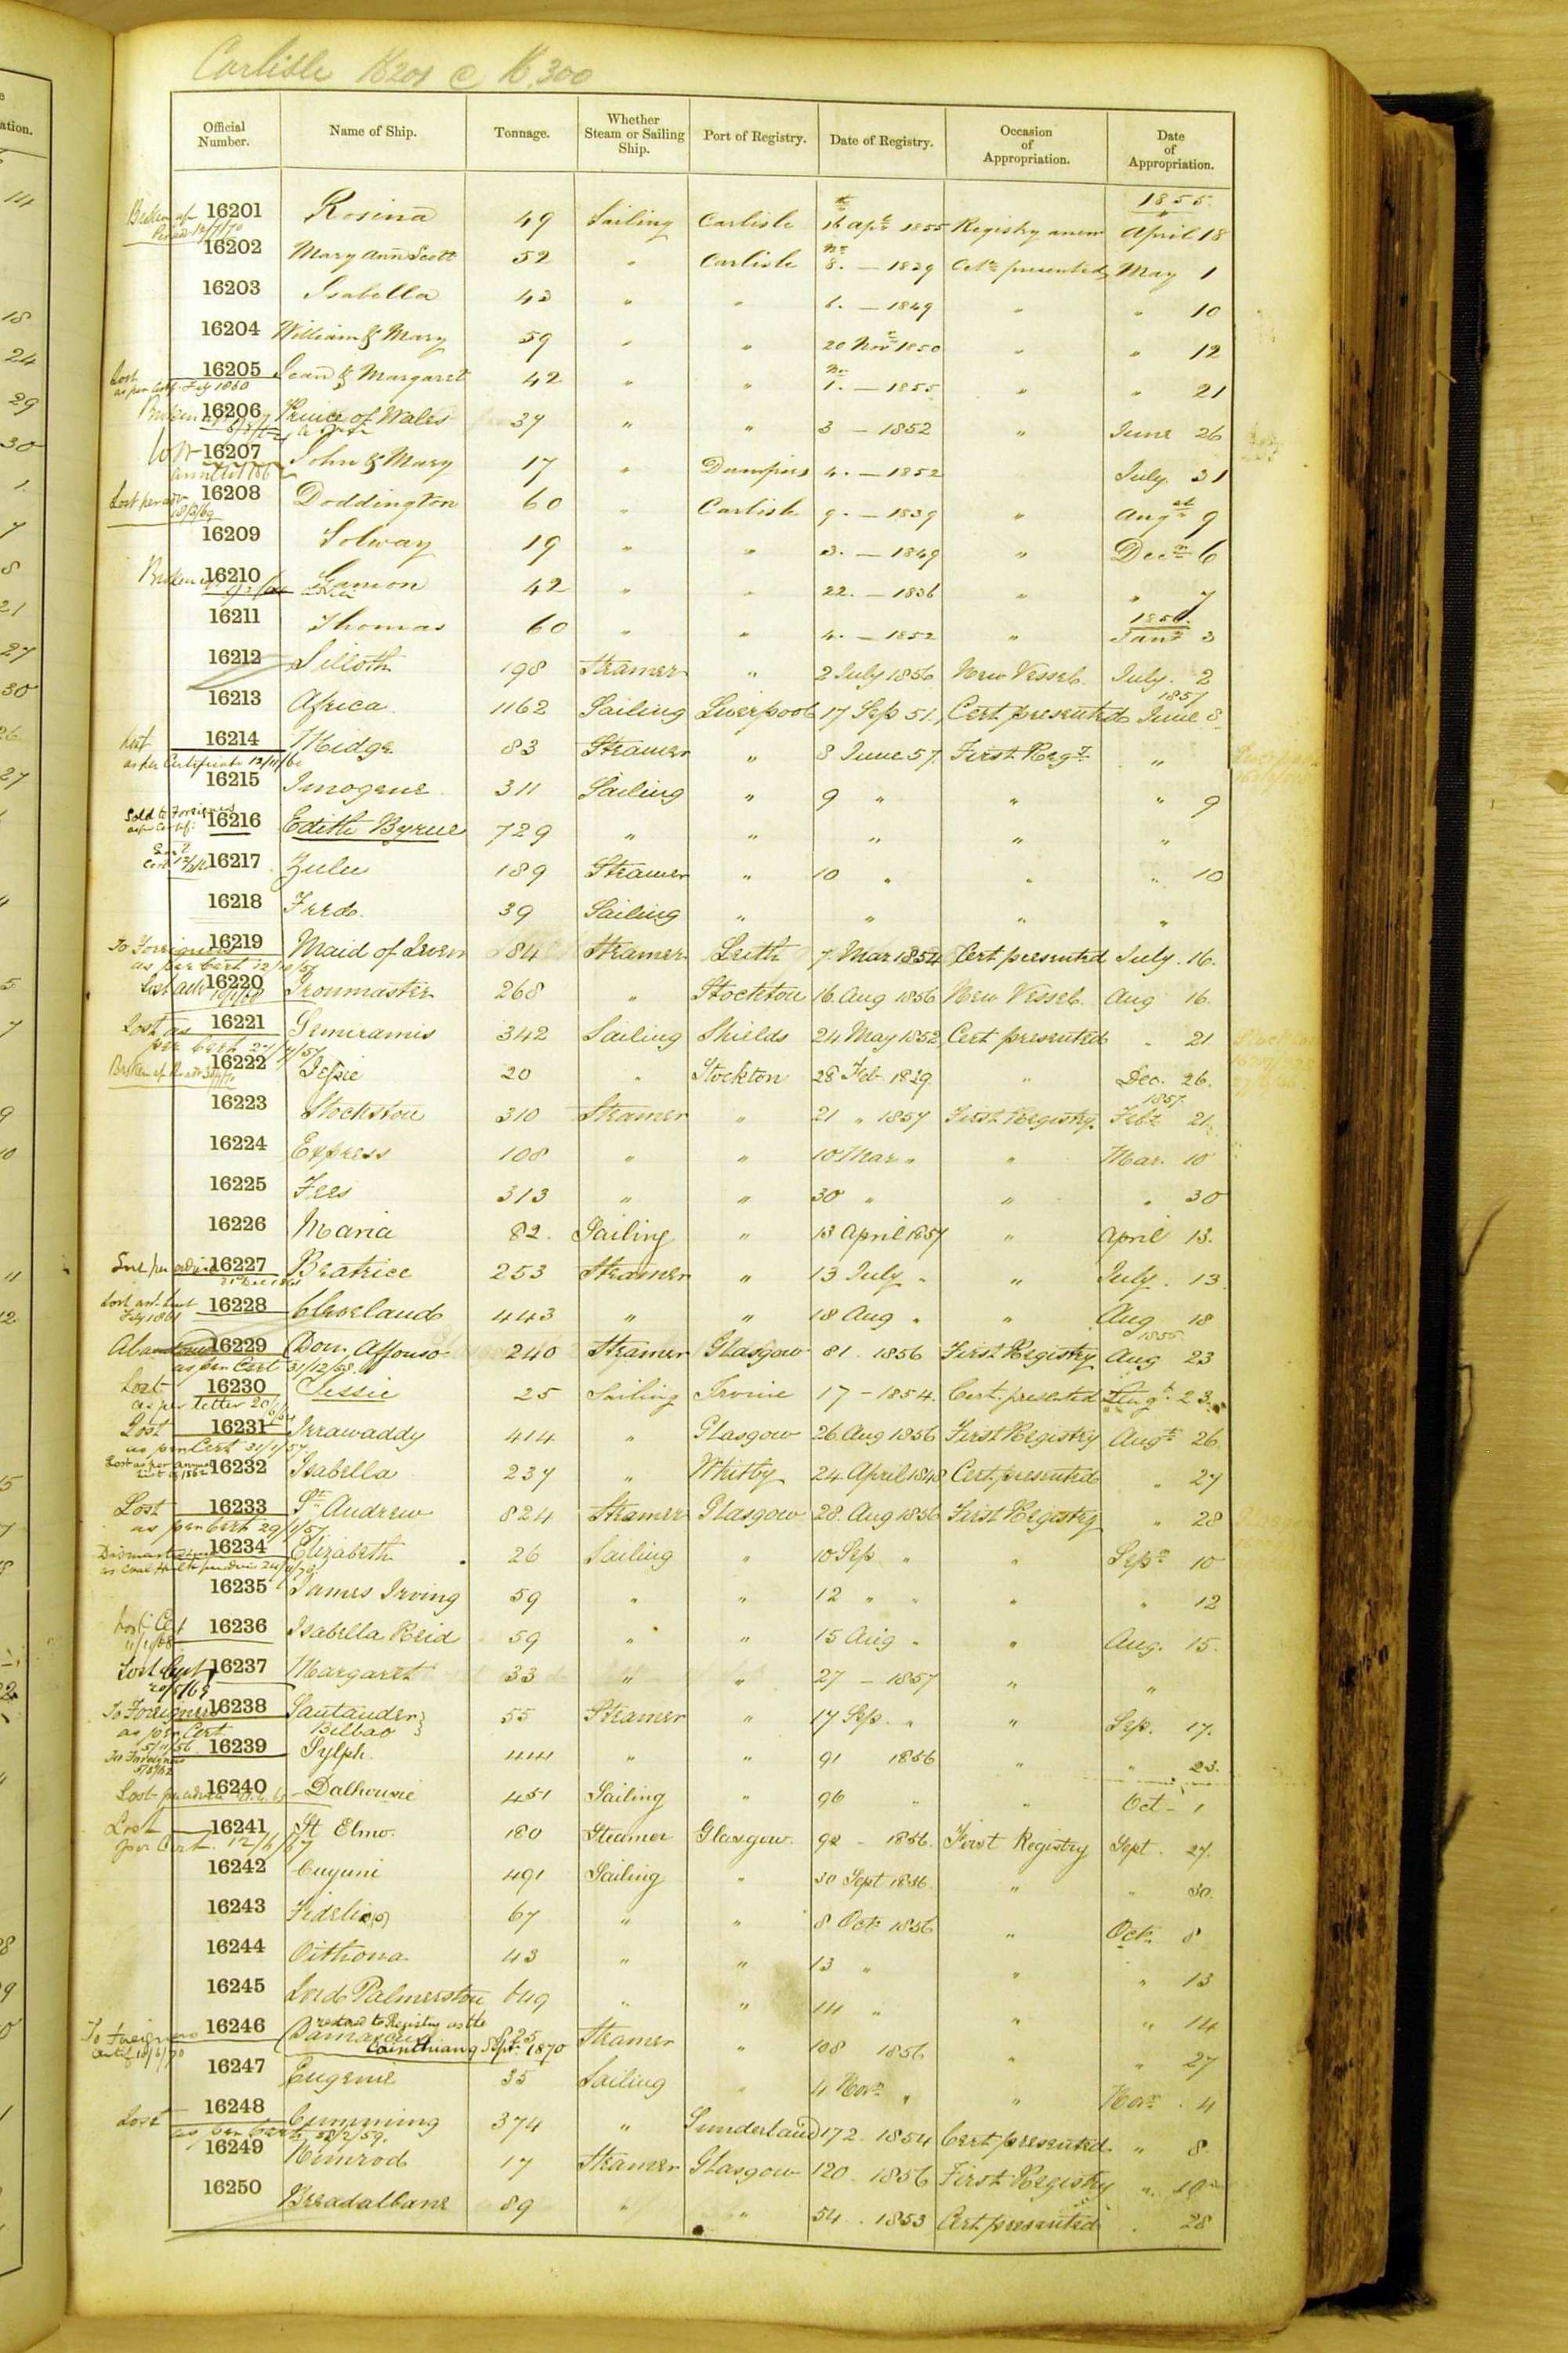 Carlisle 16201 @ 16,300
Official Number. Name of Ship. Tonnage. Whether Steam or Sailing Ship. Port of Registry. Date of Registry. Occasion of Appropriation. Date of Appropriation.
1855.
16201 Rosina 49 Sailing Carlisle 16 Apl 1855 Registry anew April 18
16202 Mary Ann Scott 52 " Carlisle 8. — 1829 Cert presented May 1
16203 Isabella 43 " " 6. — 1849 " " 10
16204 William & Mary 59 " " 20 Novr 1850 " " 12
Lost as per Certf. Feby 1860 16205 Jean & Margaret 42 " " 1. — 1855 " " 21
Broken up 16206 Prince of Wales 37 " " 3 — 1852 " June 26
Lost 16207 John & Mary 17 " Dumfries 4. — 1852 July. 31
Lost per adv 18/3/69 16208 Doddington 60 " Carlisle 9. — 1839 " Augst 9
16209 Solway 19 " " 3. — 1849 " Decr 6
Broken up 16210 42 " " 22. — 1836 " " 7
1856.
16211 Thomas 60 " " 4. — 1852 " Jany 3
16212 Silloth 198 Steamer " 2 July 1856 New Vessel. July. 2
1857
16213 Africa 1162 Sailing Liverpool 17 Sep 51. Cert presented June 8
Lost as per Certificate 12/11/60 16214 Midge 83 Steamer " 8 June 57. First Regy "
16215 Imogene 311 Sailing " 9 " " " 9
Sold to Foreigners as per Certif: 16216 Edith Byrne 729 " " " " "
16217 Zulu 189 Steamer " 10 " " " 10
16218 Fred. 39 Sailing " " " "
To Foreigners as per Cert 12/10/57 16219 Maid of Lorn 84 Steamer. Leith 7. Mar 1854 Cert presented July. 16.
16220 Ironmaster 268 " Stockton 16. Aug 1856 New Vessel. Aug 16.
Lost as per Cert 27/4/57 16221 Semiramis 342 Sailing Shields 24. May 1852 Cert presented " 21
Broken up 16222 Jessie 20 " Stockton 28 Feb 1829. " Dec. 26.
1857.
16223 Stockton 310 Steamer " 21 " 1857 First Registry. Feby 21.
16224 Express 108 " " 10 Mar " " Mar. 10
16225 Tees 313 " " 30 " " " 30
16226 Maria 82. Sailing " 13 April 1857 " April 13.
16227 Beatrice 253 Steamer " 13 July " " July. 13
16228 Cleveland 443 " " 18 Aug " " Aug 18
1856.
Abandoned as per Cert 31/12/68. 16229 Dom Affonso 240 Steamer Glasgow 81. 1856 First Registry Aug 23
Lost as per letter 16230 Jessie 25 Sailing Irvine 17 - 1854. Cert. presented Augt. 23.
Lost as per Cert 31/1/57 16231 Irrawaddy 414 " Glasgow 26. Aug 1856 First Registry Augt 26.
Lost as per annual list of 1862 16232 Isabella 237 " Whitby 24 April 1848 Cert presented " 27
Lost as per Cert 29/1/57 16233 St Andrew 824 Steamer Glasgow 28. Aug 1856 First Registry " 28
16234 Elizabeth 26 Sailing " 10 Sep " " Sepr 10
16235 James Irving 59 " " 12 " " " " 12
Lost Cert 16236 Isabella Reid 59 " " 15 Aug " " Aug. 15.
Lost Cert 20/5/69 16237 Margaret 33 " " 27 — 1857 " "
To Foreigners as per Cert 5/11/56 16238 Santander } Bilbao 55 Steamer " 17 Sep. " " Sep. 17.
To Foreigners 16239 Sylph 44 " " 91 1856 " " 23.
Lost per advice 16240 Dalhousie 451 Sailing " 96 " " Oct - 1
Lost per Cert. 12/6/67 16241 St Elmo. 180 Steamer Glasgow. 92 - 1856. First Registry Sept. 27.
16242 Cuyuni 491 Sailing " 30 Sept 1856. " " 30.
16243 67 " " 8 Oct 1856 " Oct. 8
16244 Oithona 43 " " 13 " " " 13
16245 Lord Palmerston 649 " " 14 " " " 14
To Foreigners 16246 Damascus restored to Registry as the Corinthian Sept. 1870 Steamer " 108 1856 " " 27
16247 Eugenie 35 Sailing " 4 Novr " " Novr. 4
Lost as per Cert 16248 Cumming 374 " Sunderland 172. 1854 Cert presented " 8.
16249 Nimrod 17 Steamer Glasgow 120. 1856 First Registry " 10
16250 Breadalbane 89 " " 54. 1853 Cert presented. " 28